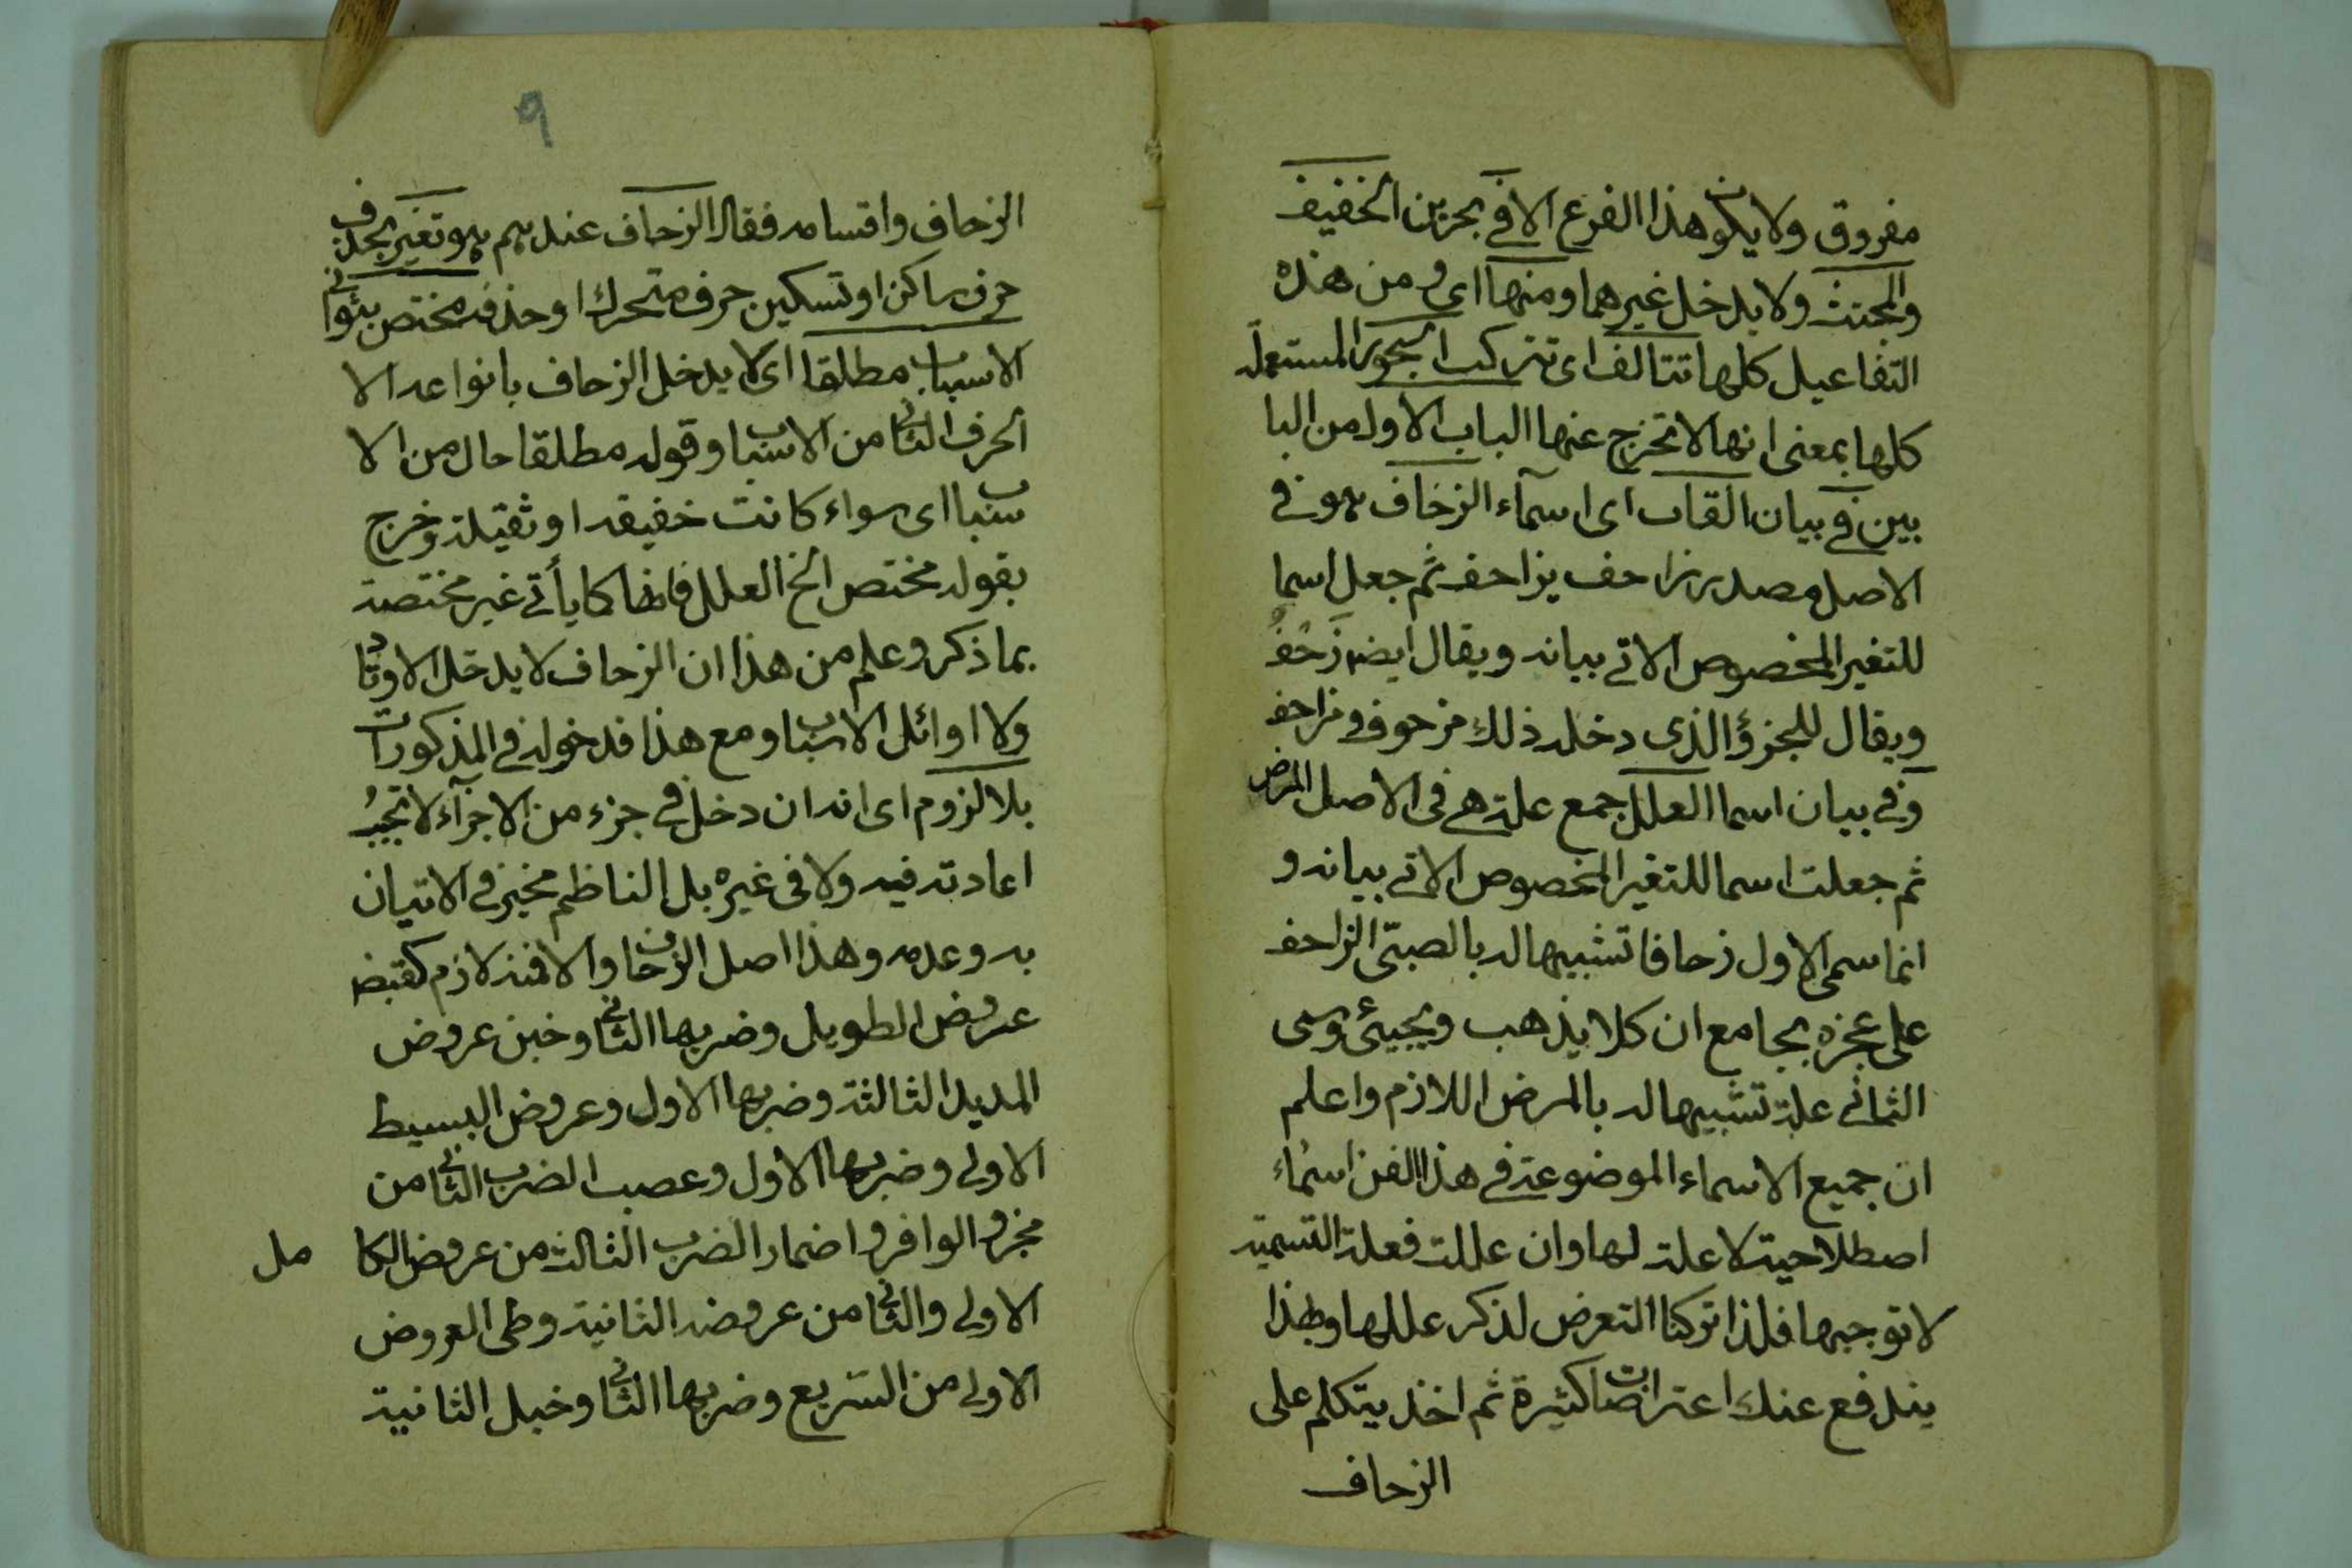 مفروق ولا يكون هذا الفرع الا في بحرين الخفيف
والمجتث ولا يدخل غيرهما ومنها اى ومن هذه
التفاعيل كلها تتألف اى تتركب البحور المستعملة
كلها بمعنى انها لا تخرج عنها الباب الاول من البا
بين في بيان القاب اى اسمآء الزحاف هو في
الاصل مصدر زاحف يزاحف ثم جعل اسما
للتغير المخصوص الاتي بيانه ويقال ايضا زَحْفُ
ويقال للجزؤ الذى دخله ذلك مزحوف ومزاحف
وفي بيان اسما العلل جمع علة هي في الاصل المرض
ثم جعلت اسما للتغير المخصوص الاتي بيانه و
انما سمى الاول زحافا تشبيها له بالصبىّ الزاحف
على عجزه بجامع ان كلا يذهب ويجيئ وسمى
الثانى علة تشبيها له بالمرض اللازم واعلم
ان جميع الاسماء الموضوعة في هذا الفن اسماء
اصطلاحية لا علة لها وان عللت فعلة التسمية
لا توجبها فلذا تركنا التعرض لذكر عللها وبهذا
يندفع عنك اعتراضات كثيرة ثم اخذ يتكلم على
الزحاف
٩
الزحاف واقسامه فقال الزحاف عندهم هو تغير بحذف
حرف ساكن او تسكين حرف متحرك او حذفه مختص بثوانى
الاسباب مطلقا اى لا يدخل الزحاف بانواعه الا
الحرف الثانى من الاسباب وقوله مطلقا حال من الا
سباب اى سواء كانت خفيفة او ثقيلة وخرج
بقوله مختص الخ العلل فانها كما يأتى غير مختصة
بما ذكر وعلم من هذا ان الزحاف لا يدخل الاوتاد
ولا اوائل الاسباب ومع هذا فدخوله في المذكورات
بلا لزوم اى انه ان دخل في جزء من الاجزآء لا تجبُ
اعادته فيه ولا فى غيره بل الناظم مخير في الاتيان
به وعدمه وهذا اصل الزحاف والا فمنه لازم كقبض
عروض الطويل وضربها الثانى وخبن عروض
المديد الثالثة وضربها الاول وعروض البسيط
الاولى وضربها الاول وعصب الضرب الثانى من
مجزو الوافر واضمار الضرب الثالث من عروض الكا مل
الاولى والثانى من عروضه الثانية وطى العروض
الاولى من السريع وضربها الثانى وخبل الثانية